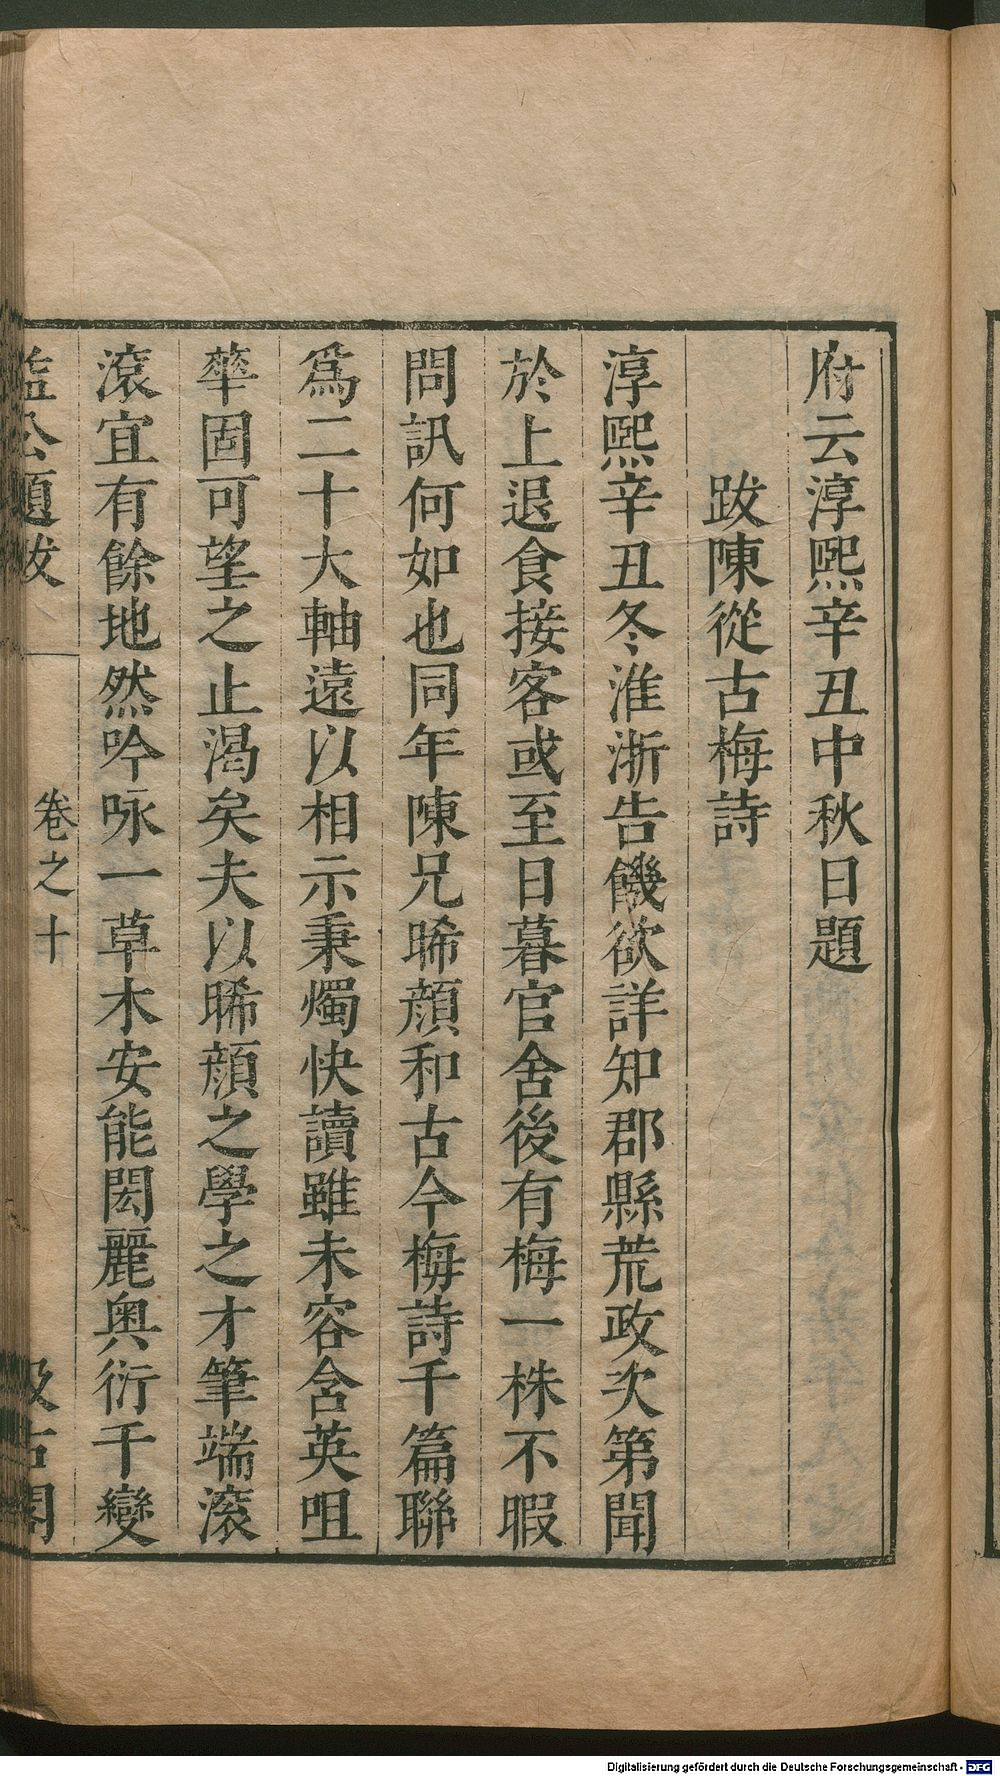 府云淳熙辛丑中秋日題
跋陳從古梅詩
淳熙辛丑冬淮浙告饑欲詳知郡縣荒政次第聞
於上退食接客或至日暮官舍後有梅一株不暇
問訊何如也同年陳兄晞顔和古今梅詩千篇聯
爲二十大軸遠以相示秉燭快讀雖未容含英咀
華固可望之止渴矣夫以晞顔之學之才筆端滾
滾宜有餘地然吟咏一草木安能閎麗奥衍千變
益公題跋 卷之十 汲古閣
Digitalisierung gefördert durch die Deutsche Forschungsgemeinschaft - DFG